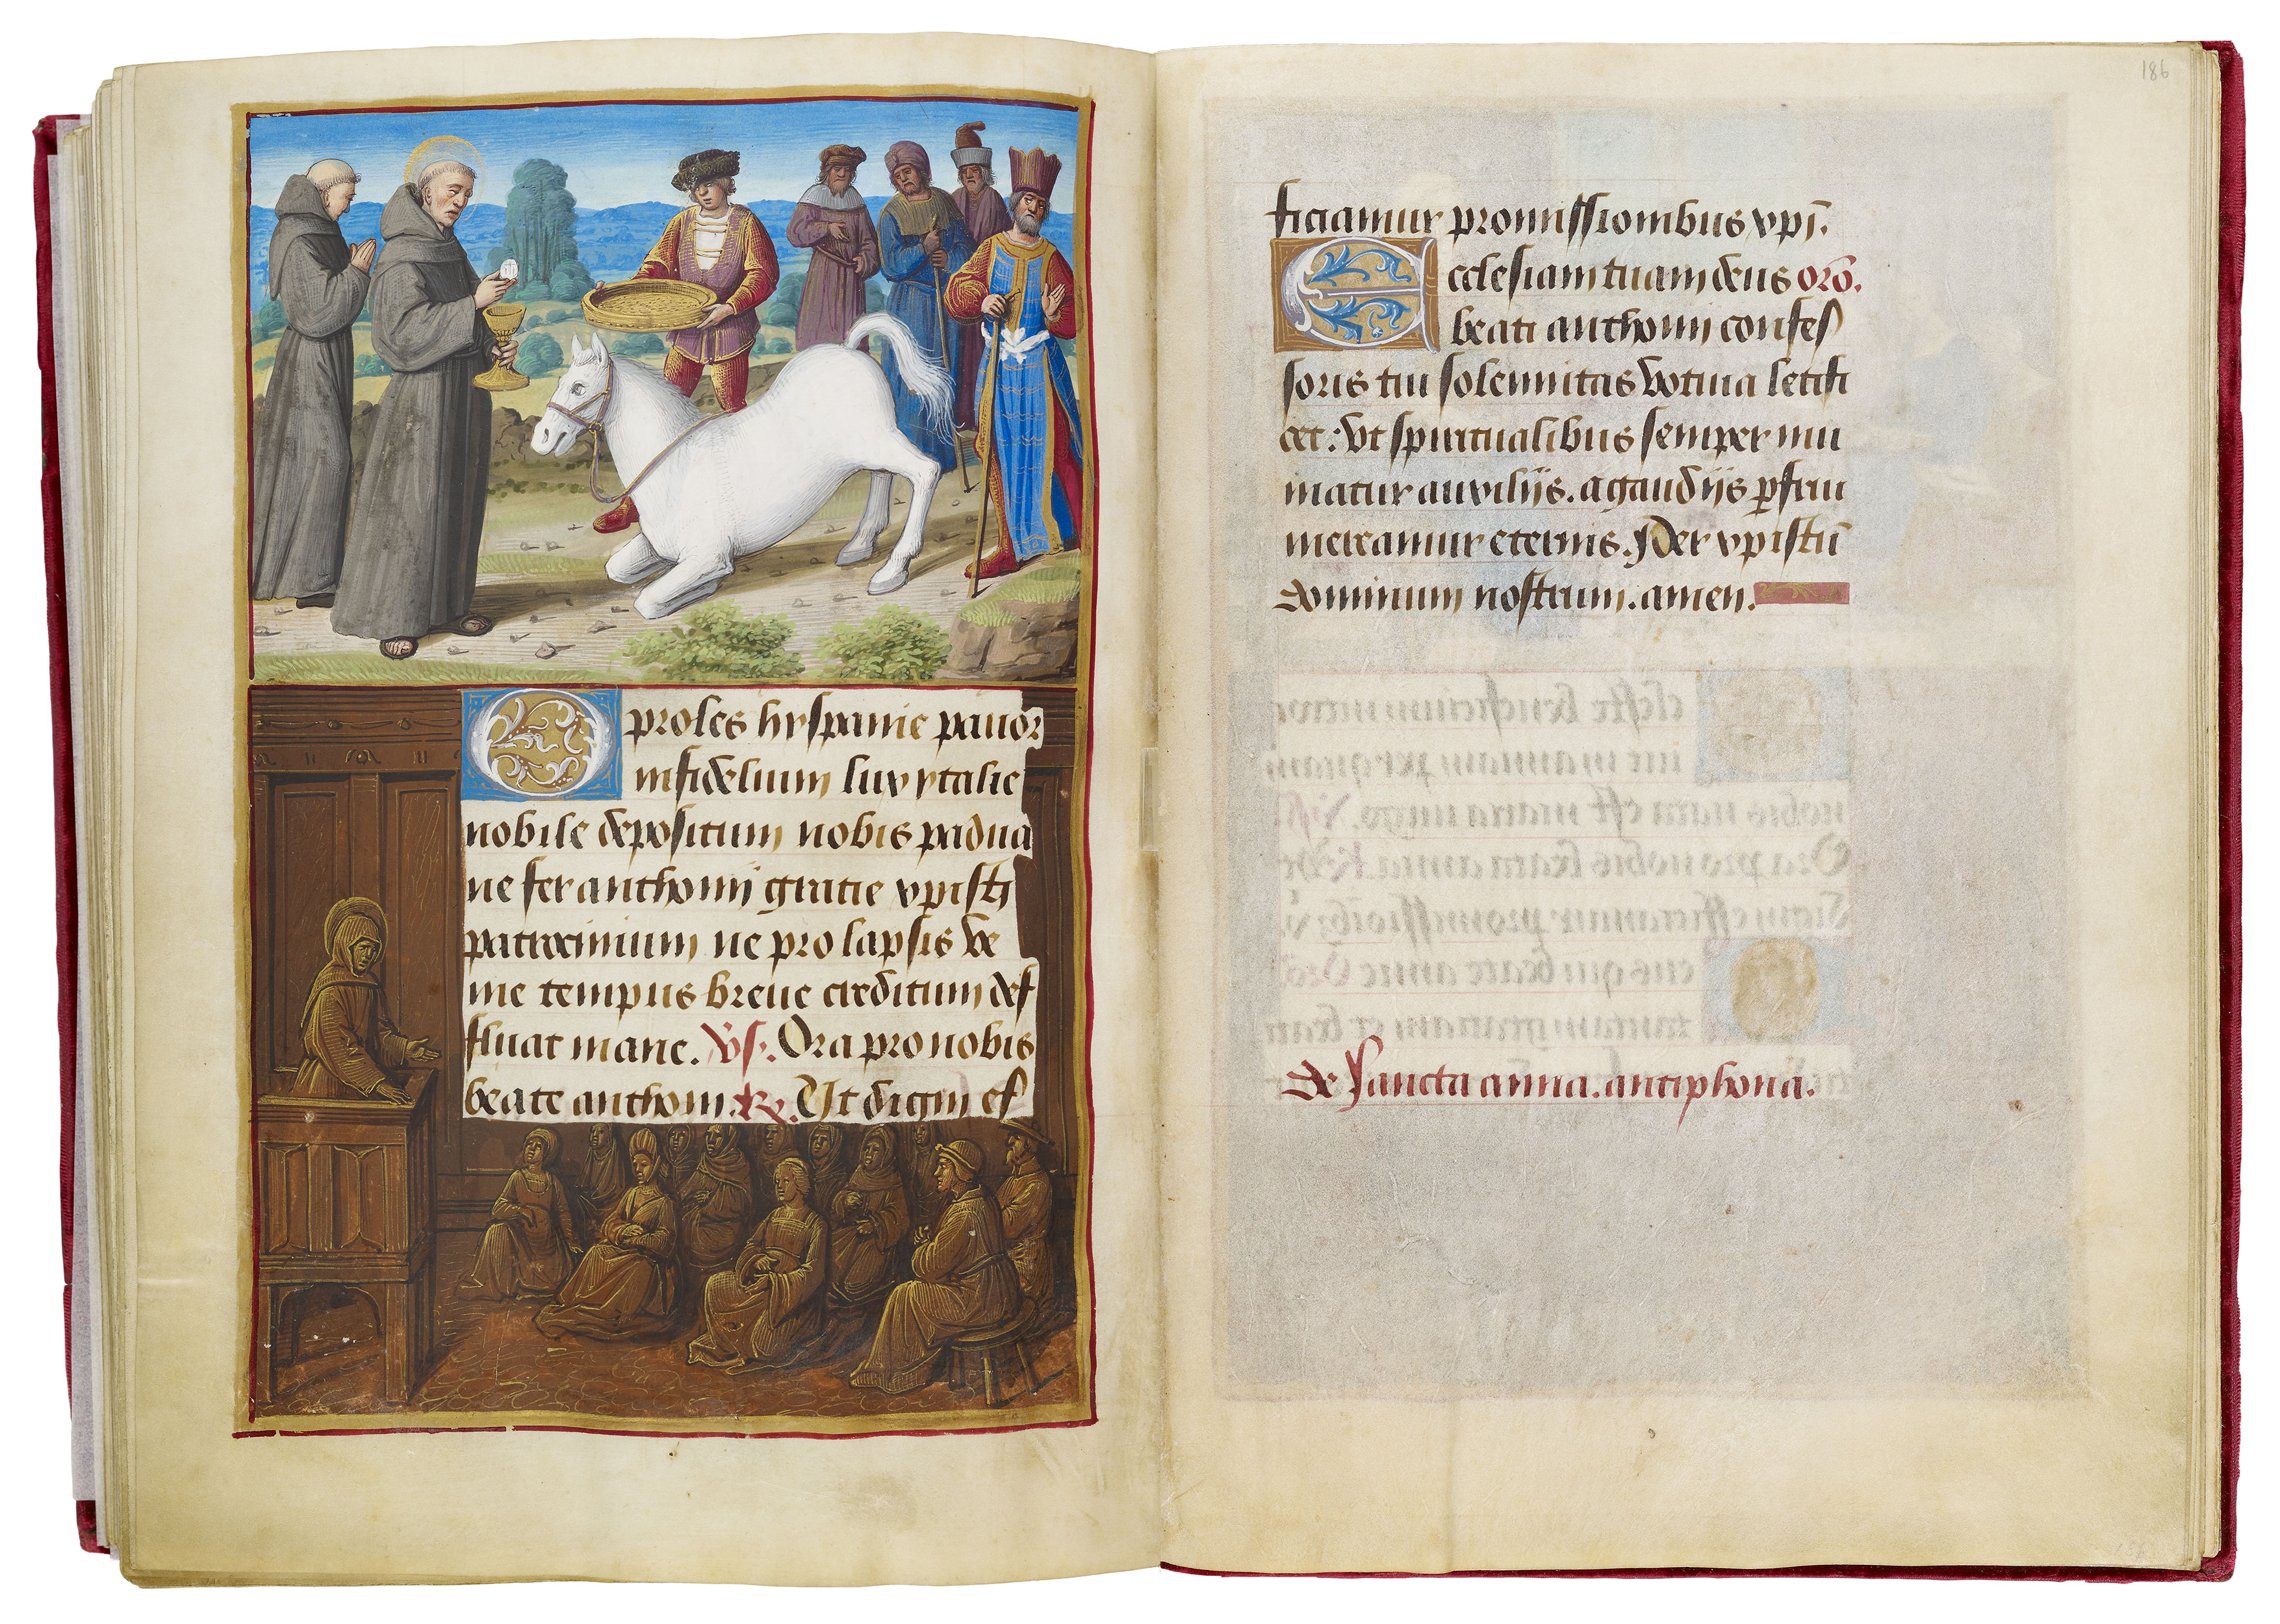 O proles hyspanie pauor
infidelium lux ytalie
nobile depositum nobis padua
ne fer anthonij gracie xpisti
patrocinium ne prolapsis ve
nie tempus breue creditum def
fluat inane. Vs. Ora pro nobis
beate anthoni. R. Ut digni ef
186
ficiamur promissionibus xpī.
Ecclesiam tuam deus orō.
beati anthonij confes
soris tui solennitas votiua letifi
cet: vt spiritualibus semper mu
niatur auxilijs. a gaudijs ꝑfrui
mereamur eternis. Per xpistū
dominum nostrum. amen.
De sancta anna. antiphona.